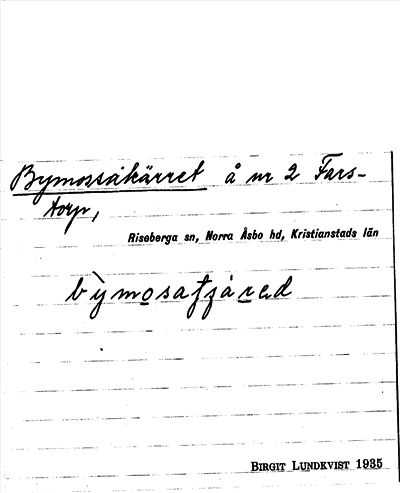 Bymossakärret å nr 2 Fars-
torp,
Riseberga sn, Norra Åsbo hd, Kristianstads län
bỳmosatjárad
BIRGIT LUNDKVIST 1935